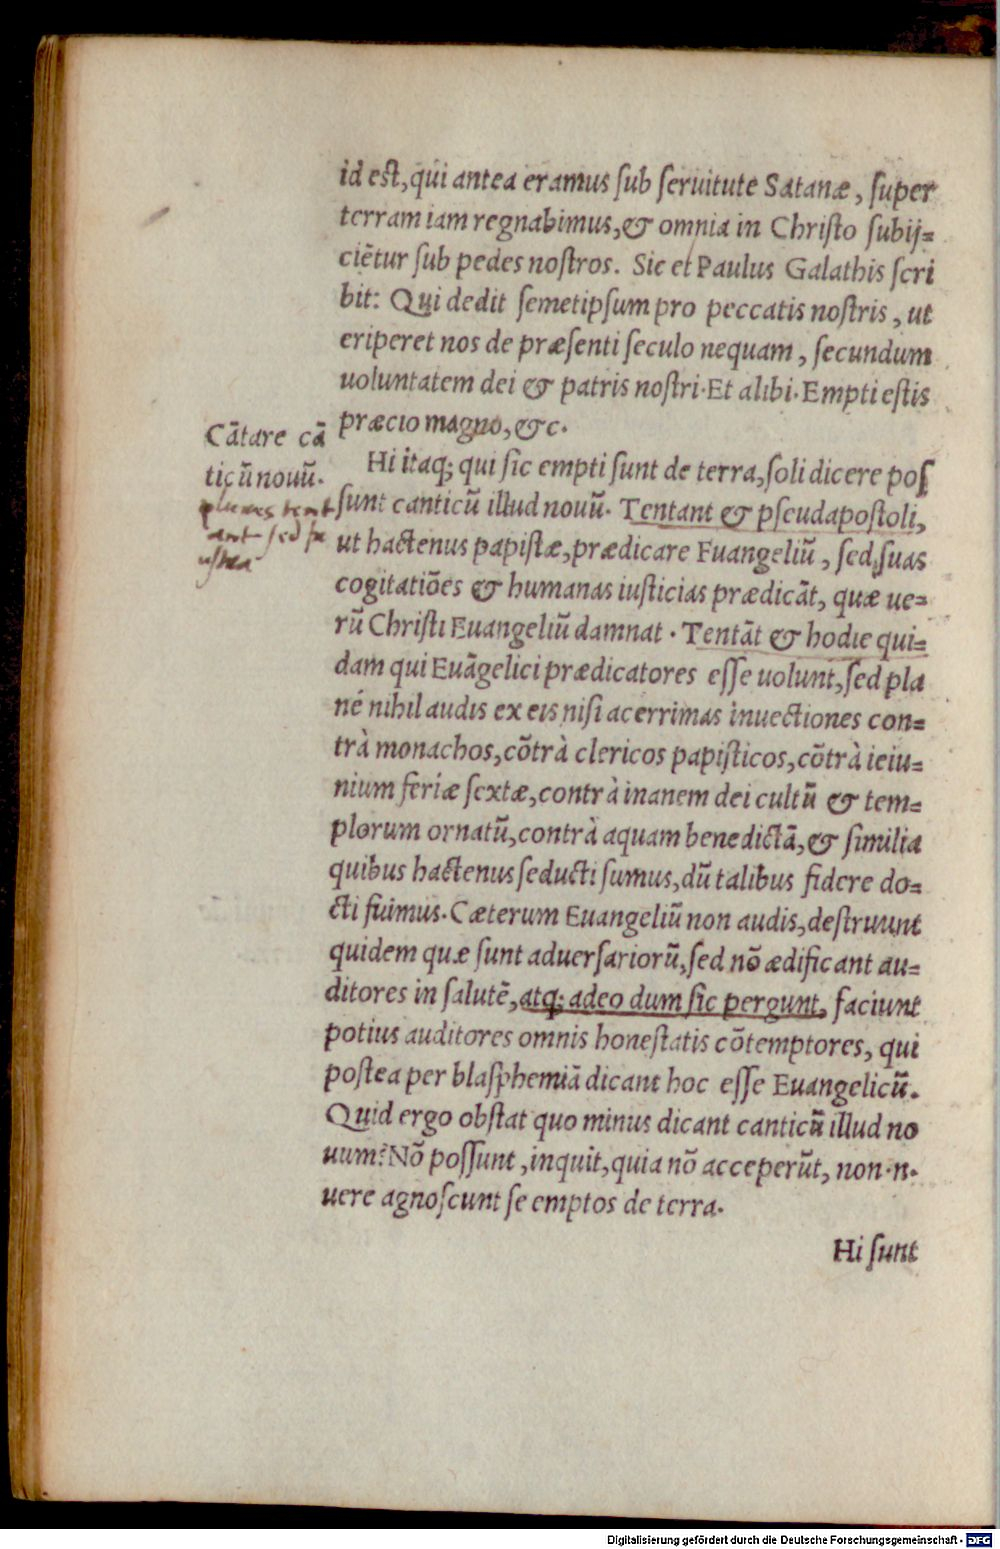 id est, qui antea eramus ſub ſeruitute Satanæ, ſuper
terram iam regnabimus, & omnia in Chriſto ſubij=
ciētur ſub pedes noſtros. Sic et Paulus Galathis ſcri
bit: Qui dedit ſemetipſum pro peccatis noſtris, ut
eriperet nos de præſenti ſeculo nequam, ſecundum
uoluntatem dei & patris noſtri. Et alibi. Empti eſtis
præcio magno, &c.
Cātare cā
ticū nouū.
Hi itaq; qui ſic empti ſunt de terra, ſoli dicere poſ
ſunt canticū illud nouū. Tentant & pſeudapoſtoli,
ut hactenus papiſtæ, prædicare Euangeliū, ſed ſuas
cogitatiōes & humanas iuſticias prædicāt, quæ ue=
rū Chriſti Euangeliū damnat. Tentāt & hodie qui=
dam qui Euāgelici prædicatores eſſe uolunt, ſed pla
né nihil audis ex eis niſi acerrimas inuectiones con=
trà monachos, cōtrà clericos papiſticos, cōtrà ieiu=
nium feriæ ſextæ, contrà inanem dei cultū & tem=
plorum ornatū, contrà aquam benedictā, & ſimilia
quibus hactenus ſeducti ſumus, dū talibus fidere do=
cti fuimus. Cæterum Euangeliū non audis, deſtruunt
quidem quæ ſunt aduerſariorū, ſed nō ædificant au=
ditores in ſalutē, atq; adeo dum ſic pergunt, faciunt
potius auditores omnis honeſtatis cōtemptores, qui
poſtea per blaſphemiā dicant hoc eſſe Euangelicū.
Quid ergo obſtat quo minus dicant canticū illud no
uum? Nō poſſunt, inquit, quia nō acceperūt, non.n.
uere agnoſcunt ſe emptos de terra.
Hi ſunt
Digitalisierung gefördert durch die Deutsche Forschungsgemeinschaft - DFG